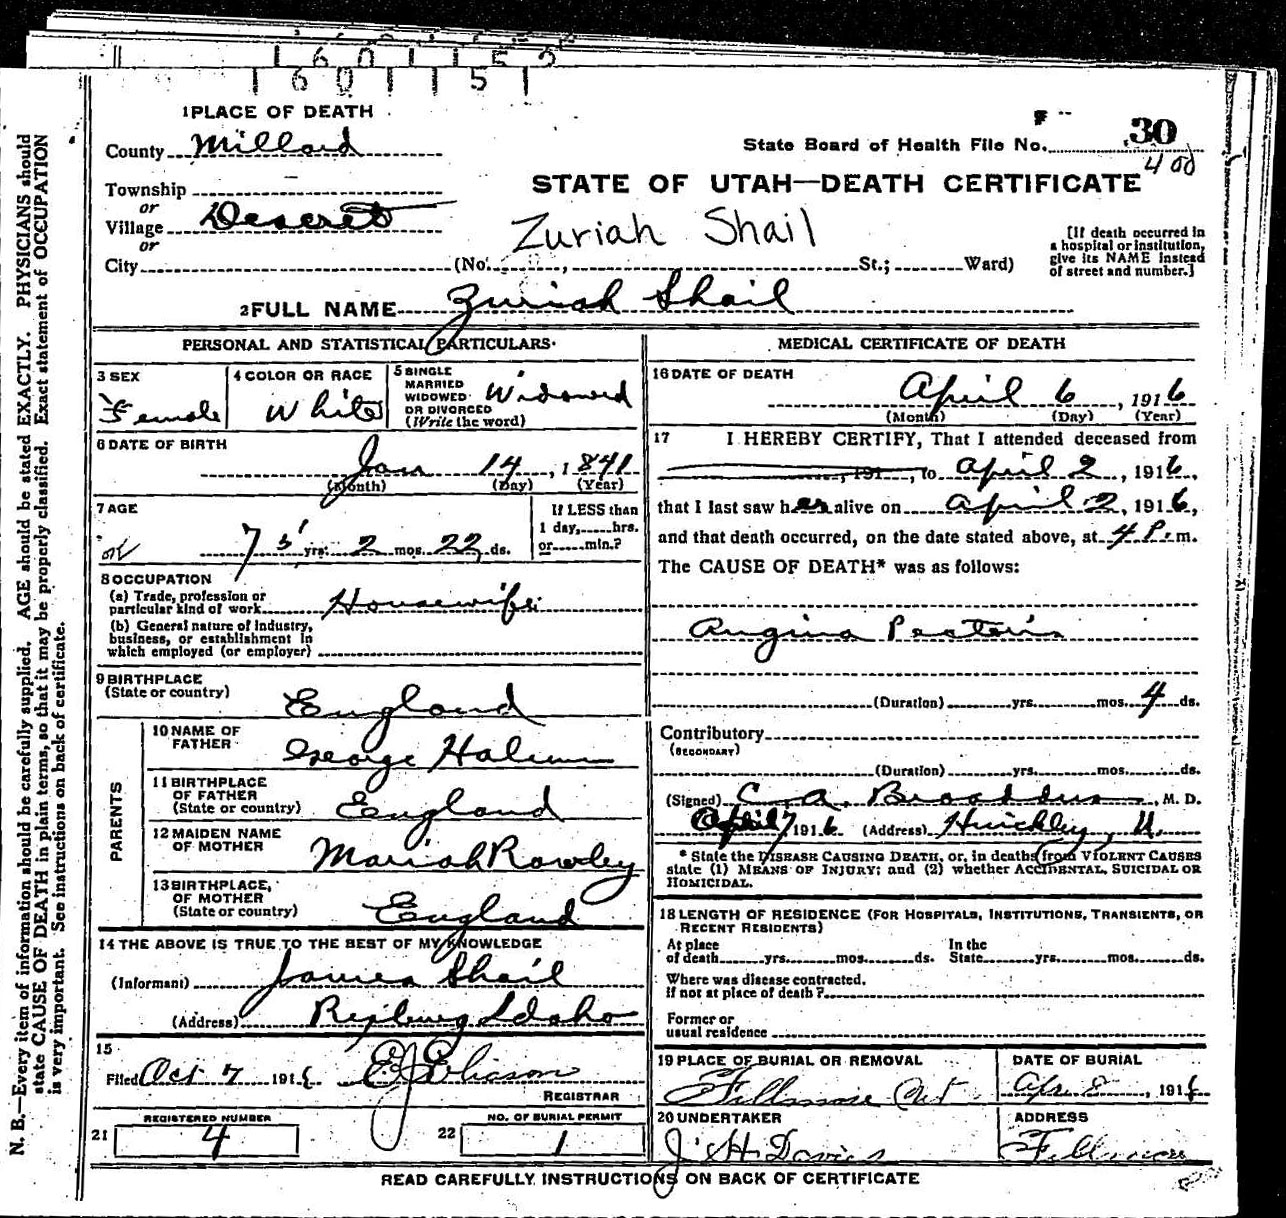 1 6 0 1 1 5 2
1 6 0 1 1 5 1
1 PLACE OF DEATH
County Millard
State Board of Health File No. 30
400
Township
or
Village Deseret
or
City (No. , St.; Ward)
STATE OF UTAH—DEATH CERTIFICATE
Zuriah Shail
[If death occurred in
a hospital or institution,
give its NAME instead
of street and number.]
2 FULL NAME Zuriah Shail
PERSONAL AND STATISTICAL PARTICULARS.
3 SEX
Female
4 COLOR OR RACE
White
5 SINGLE
MARRIED
WIDOWED
OR DIVORCED
(Write the word)
Widowed
6 DATE OF BIRTH
Jan 14, 1841
(Month) (Day) (Year)
7 AGE
75 yrs. 2 mos. 22 ds.
If LESS than
1 day, hrs.
or min.?
8 OCCUPATION
(a) Trade, profession or
particular kind of work Housewife
(b) General nature of industry,
business, or establishment in
which employed (or employer)
9 BIRTHPLACE
(State or country)
England
PARENTS
10 NAME OF
FATHER
George
11 BIRTHPLACE
OF FATHER
(State or country)
England
12 MAIDEN NAME
OF MOTHER
Mariah Rowley
13 BIRTHPLACE,
OF MOTHER
(State or country)
England
14 THE ABOVE IS TRUE TO THE BEST OF MY KNOWLEDGE
(Informant) James Shail
(Address) Rexburg Idaho
15
Filed Oct 7 1916
REGISTRAR
REGISTERED NUMBER
21 4
NO. OF BURIAL PERMIT
22 1
MEDICAL CERTIFICATE OF DEATH
16 DATE OF DEATH
April 6, 1916
(Month) (Day) (Year)
17 I HEREBY CERTIFY, That I attended deceased from
, 191 , to April 2, 1916,
that I last saw her alive on April 2, 1916,
and that death occurred, on the date stated above, at 4 P.m.
The CAUSE OF DEATH* was as follows:
Angina Pectoris
(Duration) yrs. mos. 4 ds.
Contributory
(SECONDARY)
(Duration) yrs. mos. ds.
(Signed) C. A. Broaddus, M. D.
April 7 1916 (Address) Hinckley, U.
* State the DISEASE CAUSING DEATH, or, in deaths from VIOLENT CAUSES
state (1) MEANS OF INJURY; and (2) whether ACCIDENTAL, SUICIDAL OR
HOMICIDAL.
18 LENGTH OF RESIDENCE (FOR HOSPITALS, INSTITUTIONS, TRANSIENTS, OR
RECENT RESIDENTS)
At place
of death yrs. mos. ds.
In the
State yrs. mos. ds.
Where was disease contracted.
if not at place of death?
Former or
usual residence
19 PLACE OF BURIAL OR REMOVAL
Fillmore
DATE OF BURIAL
Apr 8, 1916
20 UNDERTAKER
J. H. Davies
ADDRESS
Fillmore
READ CAREFULLY INSTRUCTIONS ON BACK OF CERTIFICATE
N. B.—Every item of information should be carefully supplied. AGE should be stated EXACTLY. PHYSICIANS should
state CAUSE OF DEATH in plain terms, so that it may be properly classified. Exact statement of OCCUPATION
is very important. See instructions on back of certificate.